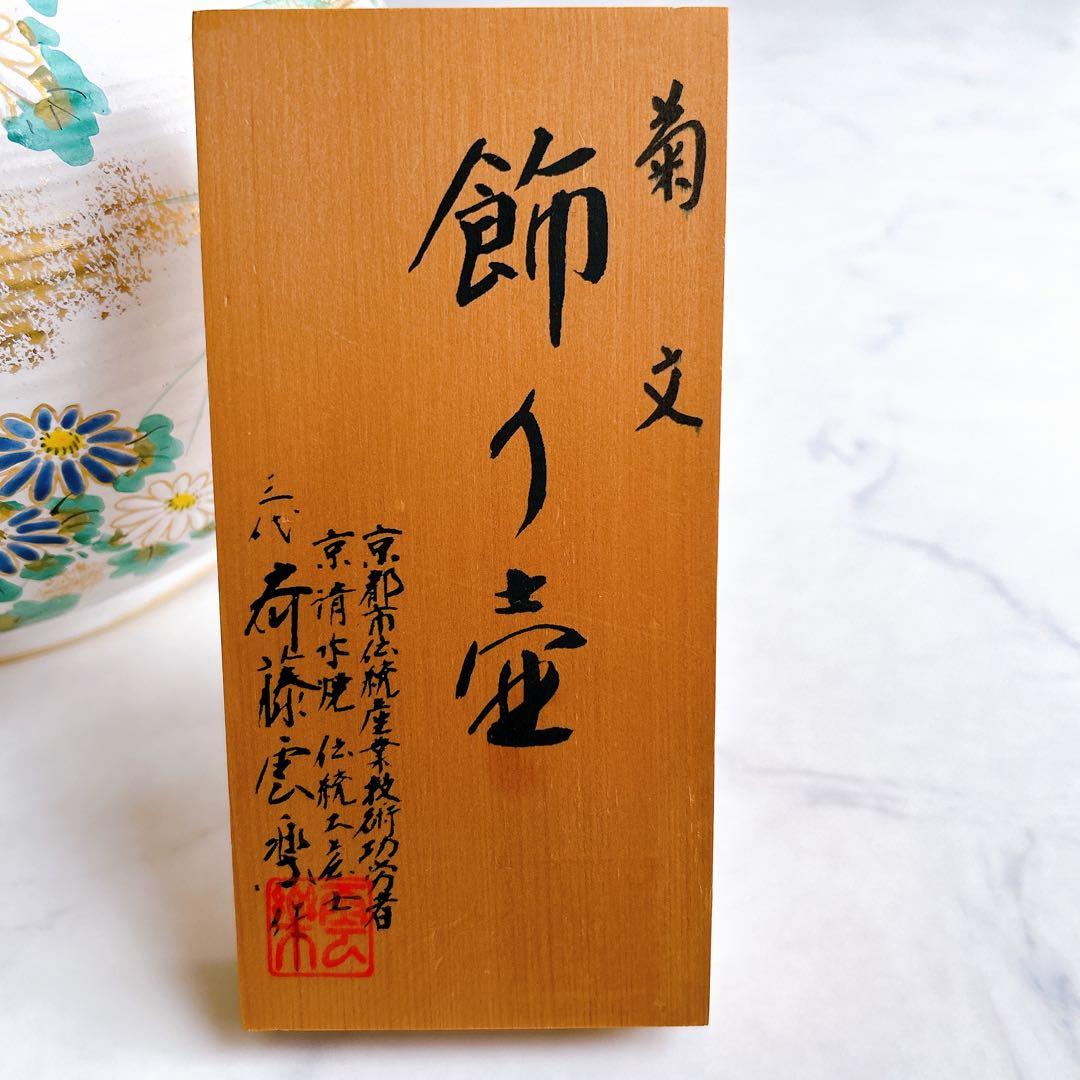 菊文
飾り壷
京都市伝統産業技術功労者
京清水焼 伝統工芸士
三代 斉藤雲楽作
雲楽